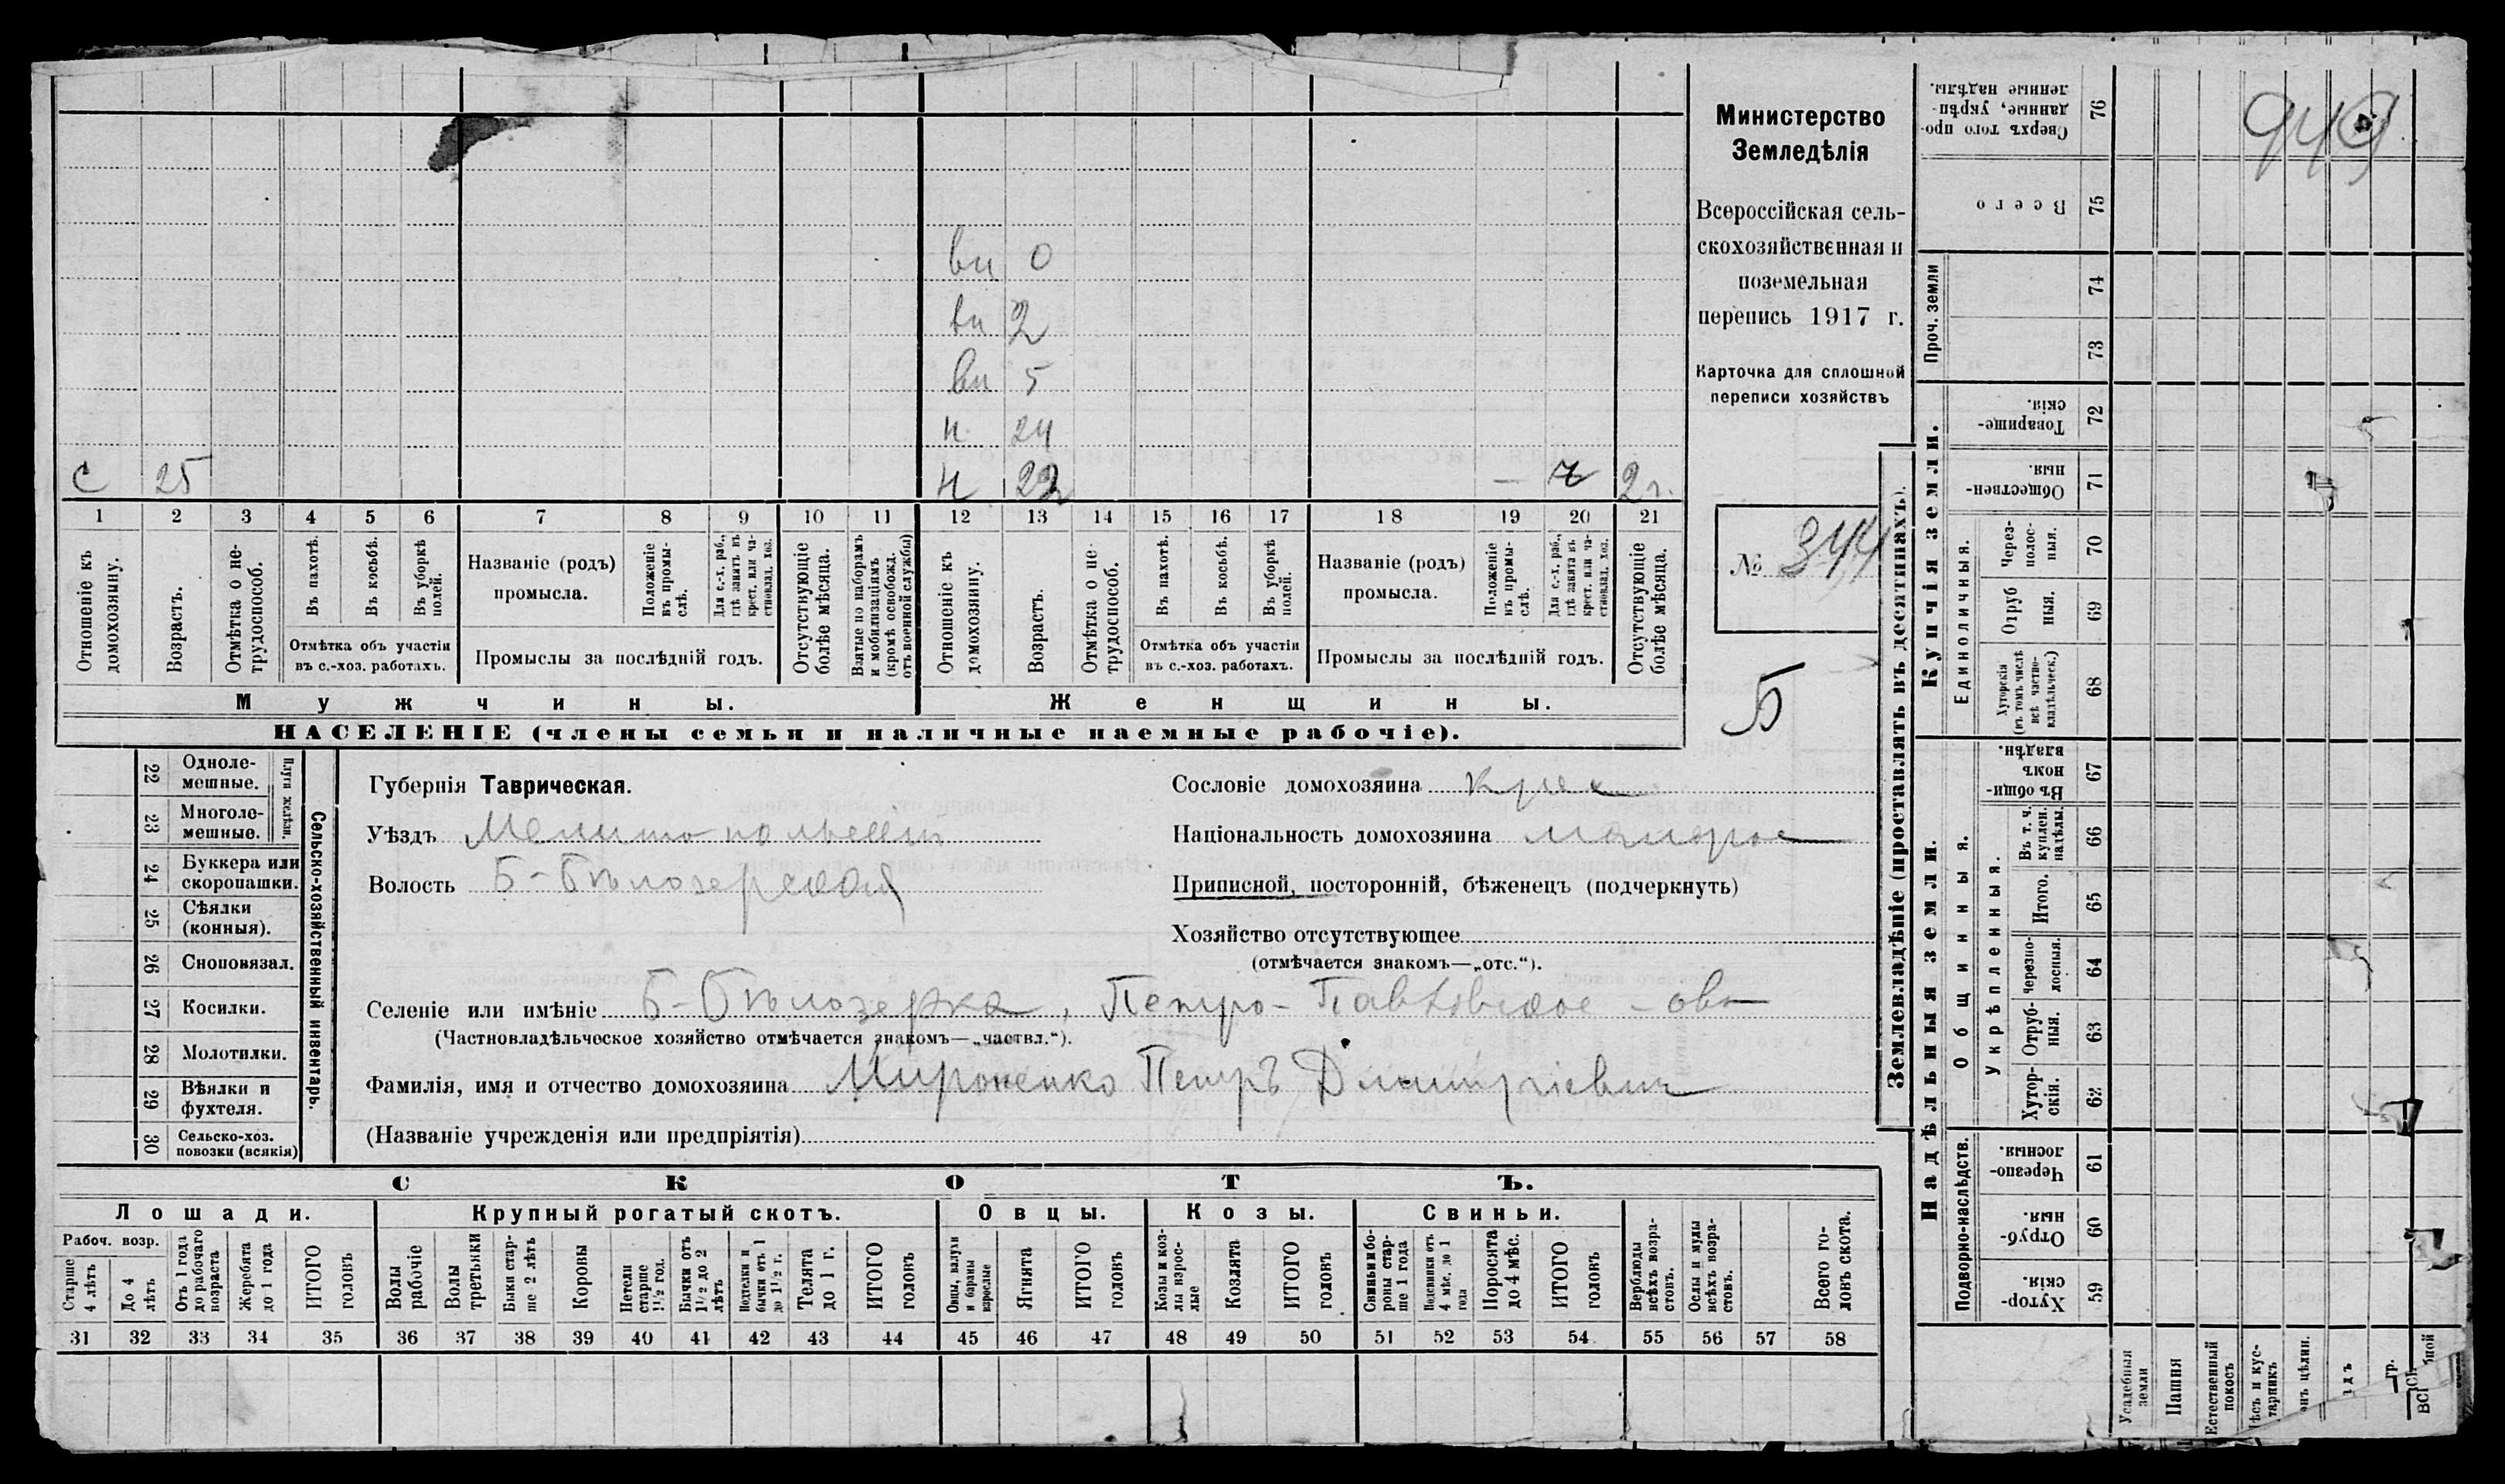 949
Министерство
Земледѣлія
Всероссійская сель-
скохозяйственная и
поземельная
перепись 1917 г.
Карточка для сплошной
переписи хозяйствъ
№ 344
Б
вн 0
вн 2
вн 5
н 24
с 25 н 22 – ч 2 г.
1 2 3 4 5 6 7 8 9 10 11 12 13 14 15 16 17 18 19 20 21
Отношеніе къ домохозяину.
Возрастъ.
Отмѣтка о не-
трудоспособ.
Въ пахотѣ.
Въ косьбѣ.
Въ уборкѣ полей.
Отмѣтка объ участіи
въ с.-хоз. работахъ.
Названіе (родъ)
промысла.
Положеніе въ промы-
слѣ.
Для с.-х. раб., гдѣ занятъ въ крест. или ча-
стновлад. хоз.
Промыслы за послѣдній годъ.
Отсутствующіе болѣе мѣсяца.
Взятые по наборамъ и мобилизаціямъ (кромѣ освобожд. отъ военной службы)
Отношеніе къ домохозяину.
Возрастъ.
Отмѣтка о не-
трудоспособ.
Въ пахотѣ.
Въ косьбѣ.
Въ уборкѣ полей.
Отмѣтка объ участіи
въ с.-хоз. работахъ.
Названіе (родъ)
промысла.
Положеніе въ промы-
слѣ.
Для с.-х. раб., гдѣ занята въ крест. или ча-
стновлад. хоз.
Промыслы за послѣдній годъ.
Отсутствующіе болѣе мѣсяца.
Мужчины. Женщины.
НАСЕЛЕНІЕ (члены семьи и наличные наемные рабочіе).
22 Одноле-
мешные.
23 Многоле-
мешные.
Плуги желѣзн.
24 Буккера или
скоропашки.
25 Сѣялки
(конныя).
26 Сноповязал.
27 Косилки.
28 Молотилки.
29 Вѣялки и
фухтеля.
30 Сельско-хоз.
повозки (всякія)
Сельско-хозяйственный инвентарь.
Губернія Таврическая.
Уѣздъ Мелитопольскій
Волость Б-Бѣлозерская
Сословіе домохозяина крес
Національность домохозяина малорос
Приписной, посторонній, бѣженецъ (подчеркнуть)
Хозяйство отсутствующее
(отмѣчается знакомъ—„отс.“).
Селеніе или имѣніе Б-Бѣлозерка, Петро-Павловское - ово
(Частновладѣльческое хозяйство отмѣчается знакомъ—„частвл.“).
Фамилія, имя и отчество домохозяина Мироненко Петръ Дмитріевичъ
(Названіе учрежденія или предпріятія)
СКОТЪ.
Лошади. Крупный рогатый скотъ. Овцы. Козы. Свиньи.
Рабоч. возр.
Старше 4 лѣтъ
До 4 лѣтъ
Отъ 1 года до рабочаго возраста
Жеребята до 1 года
ИТОГО головъ
Волы рабочіе
Волы третьяки
Быки стар-
ше 2 лѣтъ
Коровы
Нетели старше 1½ год.
Бычки отъ 1½ до 2 лѣтъ
Подтелки и бычки отъ 1 до 1½ г.
Телята до 1 г.
ИТОГО головъ
Овцы, валухи и бараны взрослые
Ягнята
ИТОГО головъ
Козы и коз-
лы взрос-
лые
Козлята
ИТОГО головъ
Свиньи и бо-
ровы стар-
ше 1 года
Подсвинки отъ 4 мѣс. до 1 года
Поросята до 4 мѣс.
ИТОГО головъ
Верблюды всѣхъ возра-
стовъ.
Ослы и мулы всѣхъ возра-
стовъ.
Всего го-
ловъ скота.
31 32 33 34 35 36 37 38 39 40 41 42 43 44 45 46 47 48 49 50 51 52 53 54 55 56 57 58
Землевладѣніе (проставлять въ десятинахъ).
Купчія земли.
Надѣльныя земли.
Сверхъ того про-
данные, укрѣп-
ленные надѣлы. 76
Всего 75
Проч. земли
74
73
Товарище-
скія. 72
Обществен-
ныя. 71
Единоличныя.
Через-
полос-
ныя. 70
Отруб
ныя. 69
Хуторскія (въ томъ числѣ всѣ частно-
владѣльческ.) 68
Общинныя.
Въ общин-
номъ
владѣн. 67
Укрѣпленныя.
Въ т. ч. куплен. надѣлы. 66
Итого. 65
Черезпо-
лосныя. 64
Отруб-
ныя. 63
Хутор-
скія. 62
Подворно-наслѣдств.
Черезпо-
лосныя. 61
Отруб-
ныя. 60
Хутор-
скія. 59
Усадебныя земли
Пашня
Естественный покосъ